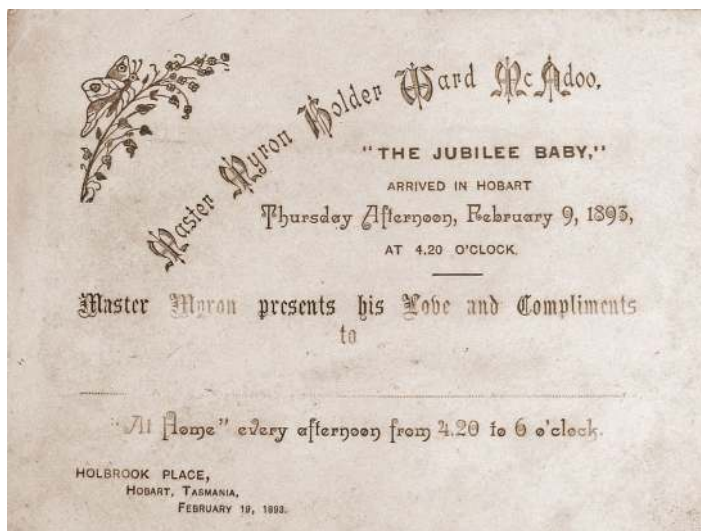 Master Myron Holder Ward McAdoo.
"THE JUBILEE BABY,"
ARRIVED IN HOBART
Thursday Afternoon, February 9, 1893,
AT 4.20 O'CLOCK.
Master Myron presents his Love and Compliments
to
"At Home" every afternoon from 4.20 to 6 o'clock.
HOLBROOK PLACE,
HOBART, TASMANIA,
FEBRUARY 19, 1893.